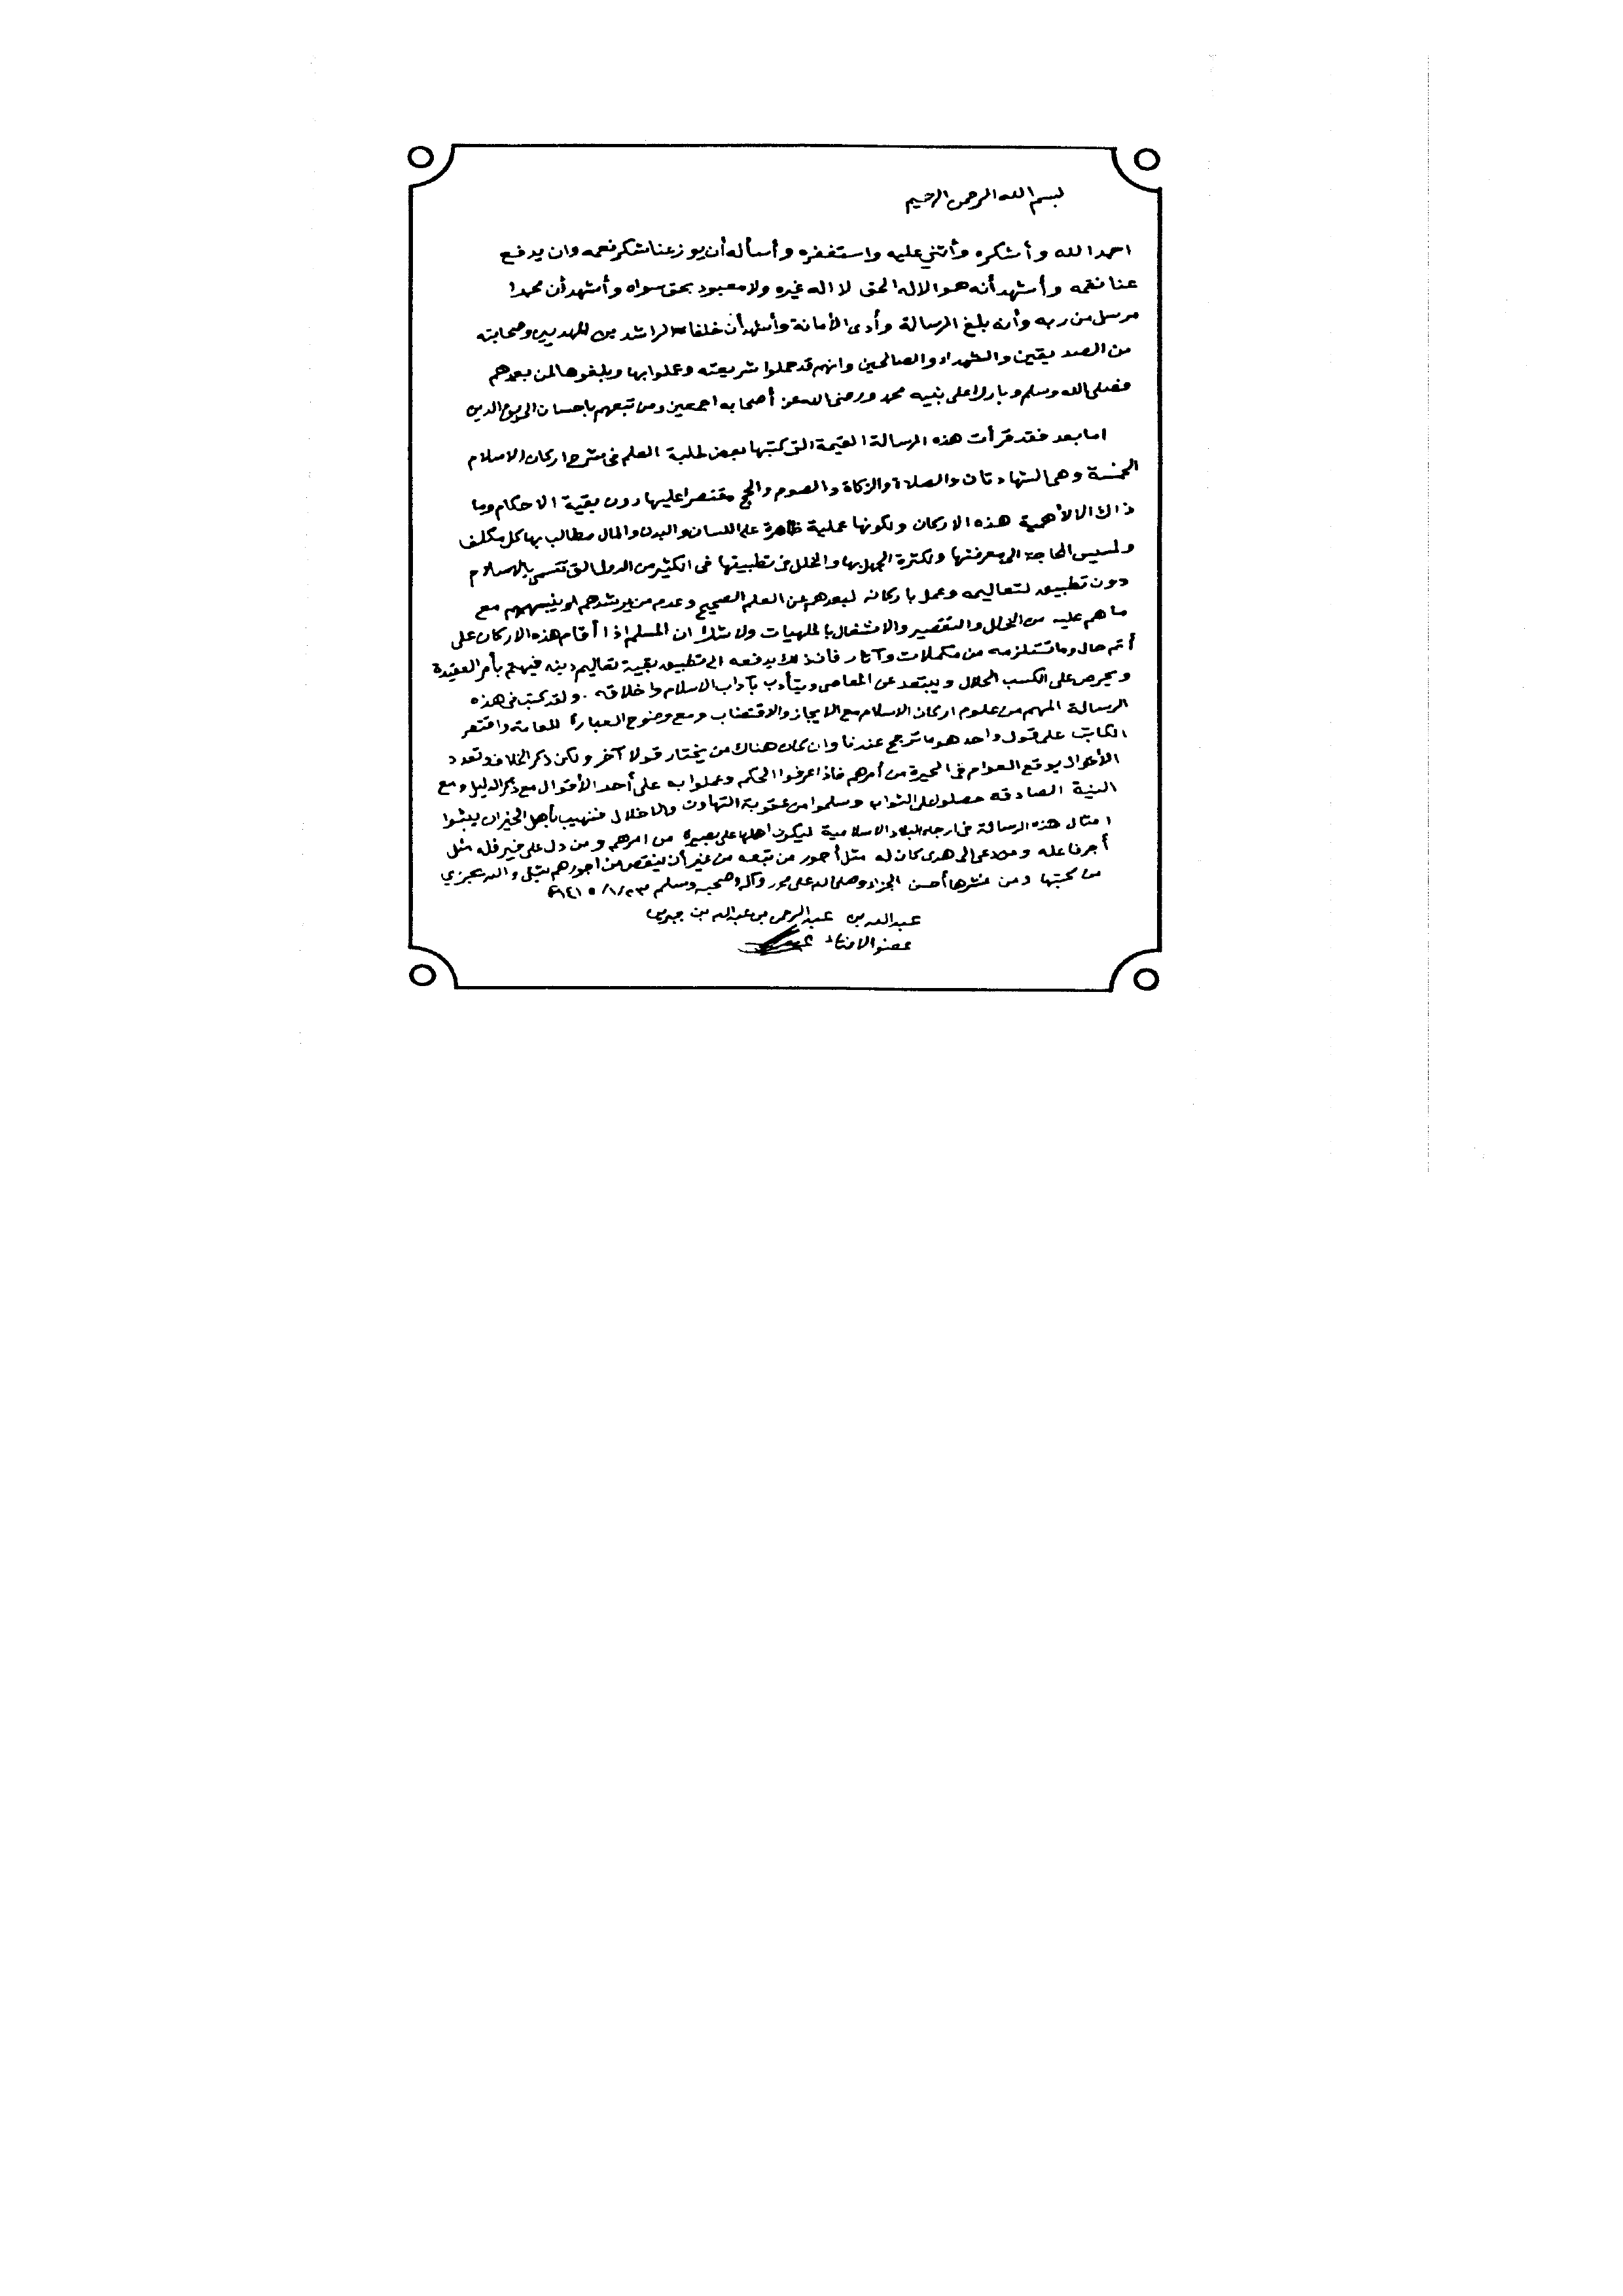 بسم الله الرحمن الرحيم
احمد الله وأشكره وأثني عليه واستغفره وأسأله أن يوزعنا شكر نعمه وان يدفع
عنا نقمه وأشهد أنه هو الاله الحق لا اله غيره ولا معبود بحق سواه وأشهد أن محمدا
مرسل من ربه وأنه بلغ الرسالة وأدى الأمانة وأشهد أن خلفاءه الراشدين المهديين وصحابته
من الصديقين والشهداء والصالحين وانهم قد حملوا شريعته وعملوا بها وبلغوها لمن بعدهم
فصلى الله وسلم وبارك على نبيه محمد ورضي الله عن أصحابه اجمعين ومن تبعهم باحسان الى يوم الدين
اما بعد فقد قرأت هذه الرسالة القيمة التي كتبها بعض طلبة العلم في شرح اركان الاسلام
الخمسة وهي الشهادتان والصلاة والزكاة والصوم والحج مقتصرا عليها دون بقية الاحكام وما
ذاك الا لأهمية هذه الاركان ولكونها عملية ظاهرة على اللسان والبدن والمال مطالب بها كل مكلف
ولمسيس الحاجة الى معرفتها ولكثرة الجهل بها والخلل في تطبيقها في الكثير من الدول التي تتسمى بالاسلام
دون تطبيق لتعاليمه وعمل باركانه لبعدهم عن العلم الصحيح وعدم من يرشدهم او ينبههم مع
ما هم عليه من الخلل والتقصير والانشغال بالملهيات ولا شك ان المسلم اذا أقام هذه الاركان على
أتم حال وما تستلزمه من مكملات وآثار فان ذلك يدفعه الى تطبيق بقية تعاليم دينه فيهتم بأمر العقيدة
ويحرص على الكسب الحلال ويبتعد عن المعاصي ويتأدب بآداب الاسلام واخلاقه . ولقد كتب في هذه
الرسالة المهم من علوم اركان الاسلام مع الايجاز والاقتضاب ومع وضوح العبارة للعامة واقتصر
الكاتب على قول واحد هو ما ترجح عندنا وان كان هناك من يختار قولا آخر ولكن ذكر الخلاف وتعدد
الأقوال يوقع العوام في الحيرة من أمرهم فاذا عرفوا الحكم وعملوا به على أحد الأقوال مع ذكر الدليل ومع
النية الصادقه حصلوا على الثواب وسلموا من عقوبة التهاون والاخلال فنهيب بأهل الخير ان يبثوا
امثال هذه الرسالة في ارجاء البلاد الاسلامية ليكون اهلها على بصيرة من امرهم ومن دل على خير فله مثل
أجر فاعله ومن دعى الى هدى كان له مثل أجور من تبعه من غير أن ينقص من اجورهم شيئا والله يجزي
من كتبها ومن نشرها أحسن الجزاء وصلى الله على محمد وآله وصحبه وسلم
عبد الله بن عبد الرحمن بن عبد الله بن جبرين
عضو الافتاء